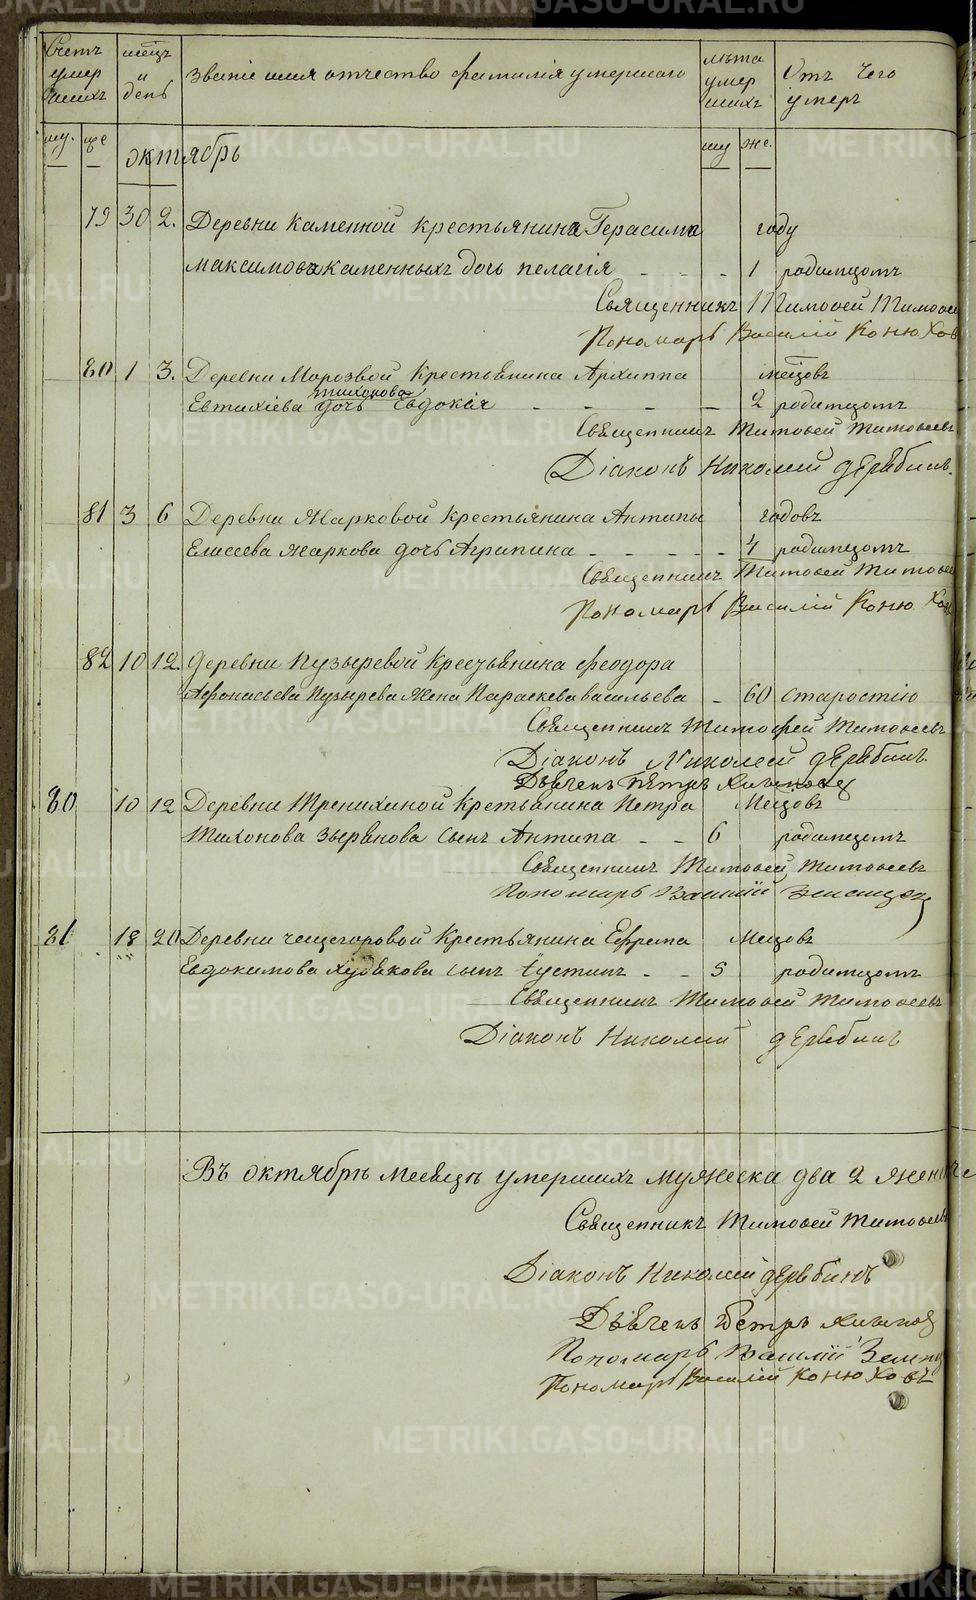 Счетъ умер шихъ месцъ и день званіе имя отчество фамилія умершаго лѣта умер шихъ Отъ чего умеръ
му. же му же.
октябрь
79 30 2. Деревни Каменной крестьянина Герасима году
Максимова Каменныхъ дочь пелагія 1 родимцомъ
Священникъ Тимоѳей Тимоѳе
Пономарь Василій Конюхов
80 1 3. Деревни Морозвой Крестьянина Архиппа месцовъ
тихонова
Евтихіева дочь Евдокія 2 родимцомъ
Священникъ Тимоѳей Тимоѳеевъ
Діаконъ Николай дерябинъ.
81 3 6 Деревни Жарковой Крестьянина Антипы годовъ
Елисеева Жаркова дочь Агрипина 4 родимцомъ
Священникъ Тимоѳей Тимоѳее
Пономарь Василій Коню Хов
82 10 12 Деревни Пузыревой Крестьянина Феодора
Афонасьева Пузырева Жена Параскева васильева 60 старостію
Священникъ Тимофей Тимоѳеевъ
Діаконъ Николай дерябинъ.
Дьячекъ Петръ
80 10 12 Деревни Тренихиной Крестьянина Петра Месцовъ
Тихонова Зырянова сынъ Антипа 6 родимцомъ
Священникъ Тимоѳей Тимоѳеевъ
Пономарь Василій
81 18 20 Деревни чещегоровой Крестьянина Ефрема Месцовъ
Евдокимова Худякова сынъ Іустинъ 5 родимцомъ
Священникъ Тимоѳей Тимоѳеевъ
Діаконъ Николай дерябинъ
Въ октябрѣ месяцѣ умершихъ мужеска два 2 жен
Священникъ Тимоѳей Тимоѳеевъ
Діаконъ Николай дерябинъ
Дьячекъ Петръ
Пономарь Василій
Пономарь Василій Коню Ховъ
METRIKI.GASO-URAL.RU